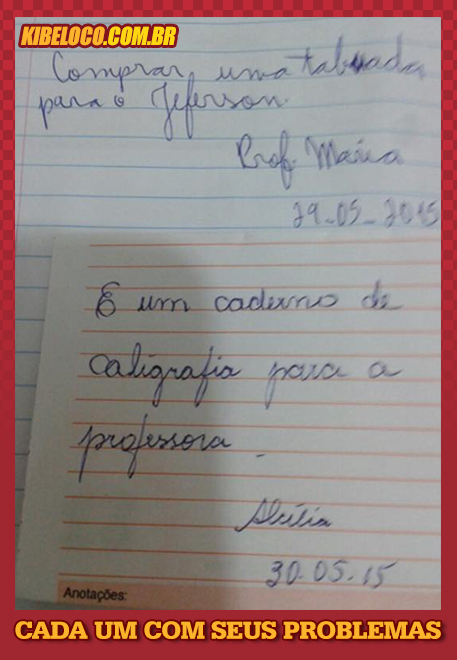 KIBELOCO.COM.BR
Comprar uma tabuada
para o Jeferson.
Prof. Maria
29-05-2015
E um caderno de
caligrafia para a
professora.
30.05.15
Anotações:
CADA UM COM SEUS PROBLEMAS